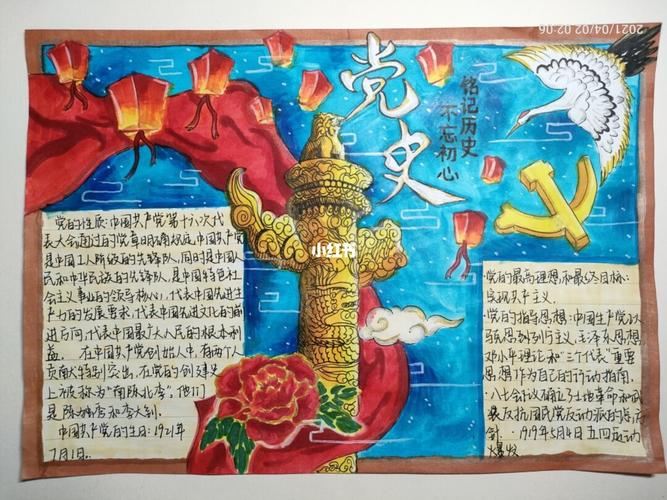 2021/04/02 02:06
党史
铭记历史
不忘初心
小红书
党的性质：中国共产党第十六次代
表大会通过的党章明确规定，中国共产党
是中国工人阶级的先锋队，同时是中国人
民和中华民族的先锋队，是中国特色社
会主义事业的领导核心，代表中国先进生
产力的发展要求，代表中国先进文化的前
进方向，代表中国最广大人民的根本利
益。在中国共产党创始人中，有两个人
贡献特别突出，在党的创建史
上被称为“南陈北李”，他们
是陈独秀和李大钊。
中国共产党的生日：1921年
7月1日。
党的最高理想和最终目标：
实现共产主义。
党的指导思想：中国共产党以马
列主义、毛泽东思想、
邓小平理论和“三个代表”重要
思想作为自己的行动指南。
·八七会议确立了土地革命和武
装反抗国民党反动派的总方
针。·1919年5月4日五四运动
爆发